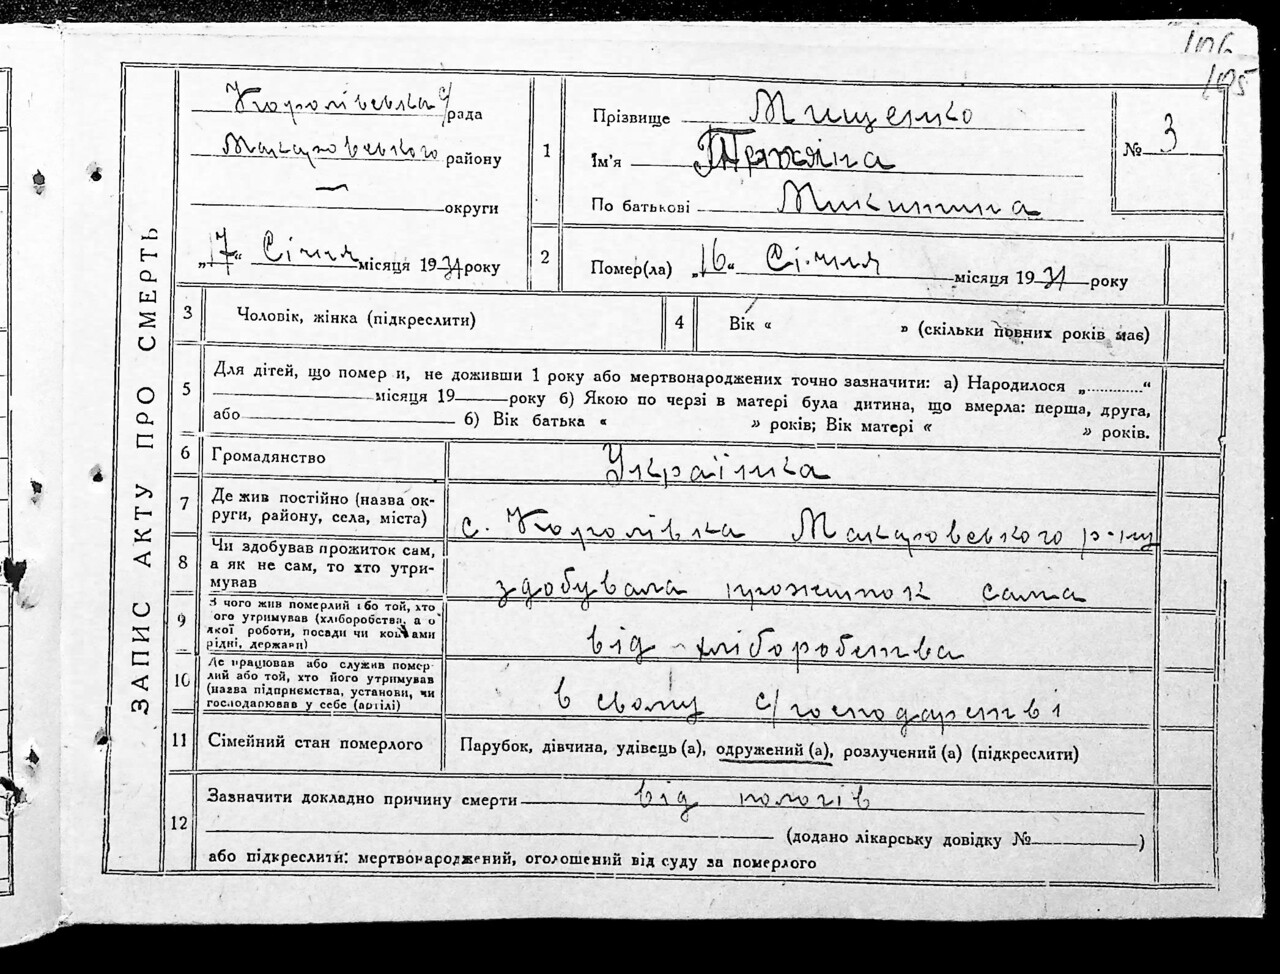 106
105
ЗАПИС АКТУ ПРО СМЕРТЬ
Королівська с/рада
Макаровського району
— округи
„17“ Січня місяця 1931 року
1
Прізвище Мищенко
Ім'я
По батькові Микитина
№ 3
2
Помер(ла) „16“ Січня місяця 1931 року
3
Чоловік, жінка (підкреслити)
4
Вік « » (скільки повних років мав)
5
Для дітей, що померли, не доживши 1 року або мертвонароджених точно зазначити: а) Народилося „............“
місяця 19 року б) Якою по черзі в матері була дитина, що вмерла: перша, друга,
або б) Вік батька « » років; Вік матері « » років.
6
Громадянство
Українка
7
Де жив постійно (назва ок-
руги, району, села, міста)
с. Королівка Макаровського р-ну
8
Чи здобував прожиток сам,
а як не сам, то хто утри-
мував
здобувала прожиток сама
9
З чого жив померлий або той, хто
його утримував (хліборобства, а о
якої роботи, посади чи коштами
рідні, держави)
від хліборобства
10
Де працював або служив помер-
лий або той, хто його утримував
(назва підприємства, установи, чи
господарював у себе (артілі)
в свому с/господарстві
11
Сімейний стан померлого
Парубок, дівчина, удівець (а), одружений (а), розлучений (а) (підкреслити)
12
Зазначити докладно причину смерти від пологів
(додано лікарську довідку № )
або підкреслити: мертвонароджений, оголошений від суду за померлого